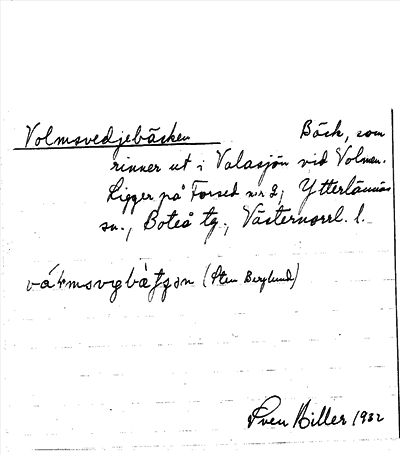 Volmsvedjebäcken Bäck, som
rinner ut i Valasjön vid Volmen.
Ligger på Forsed nr 2, Ytterlännäs
sn., Boteå tg., Västernorrl. l.
(Sten Berglund)
Sven Hiller 1932